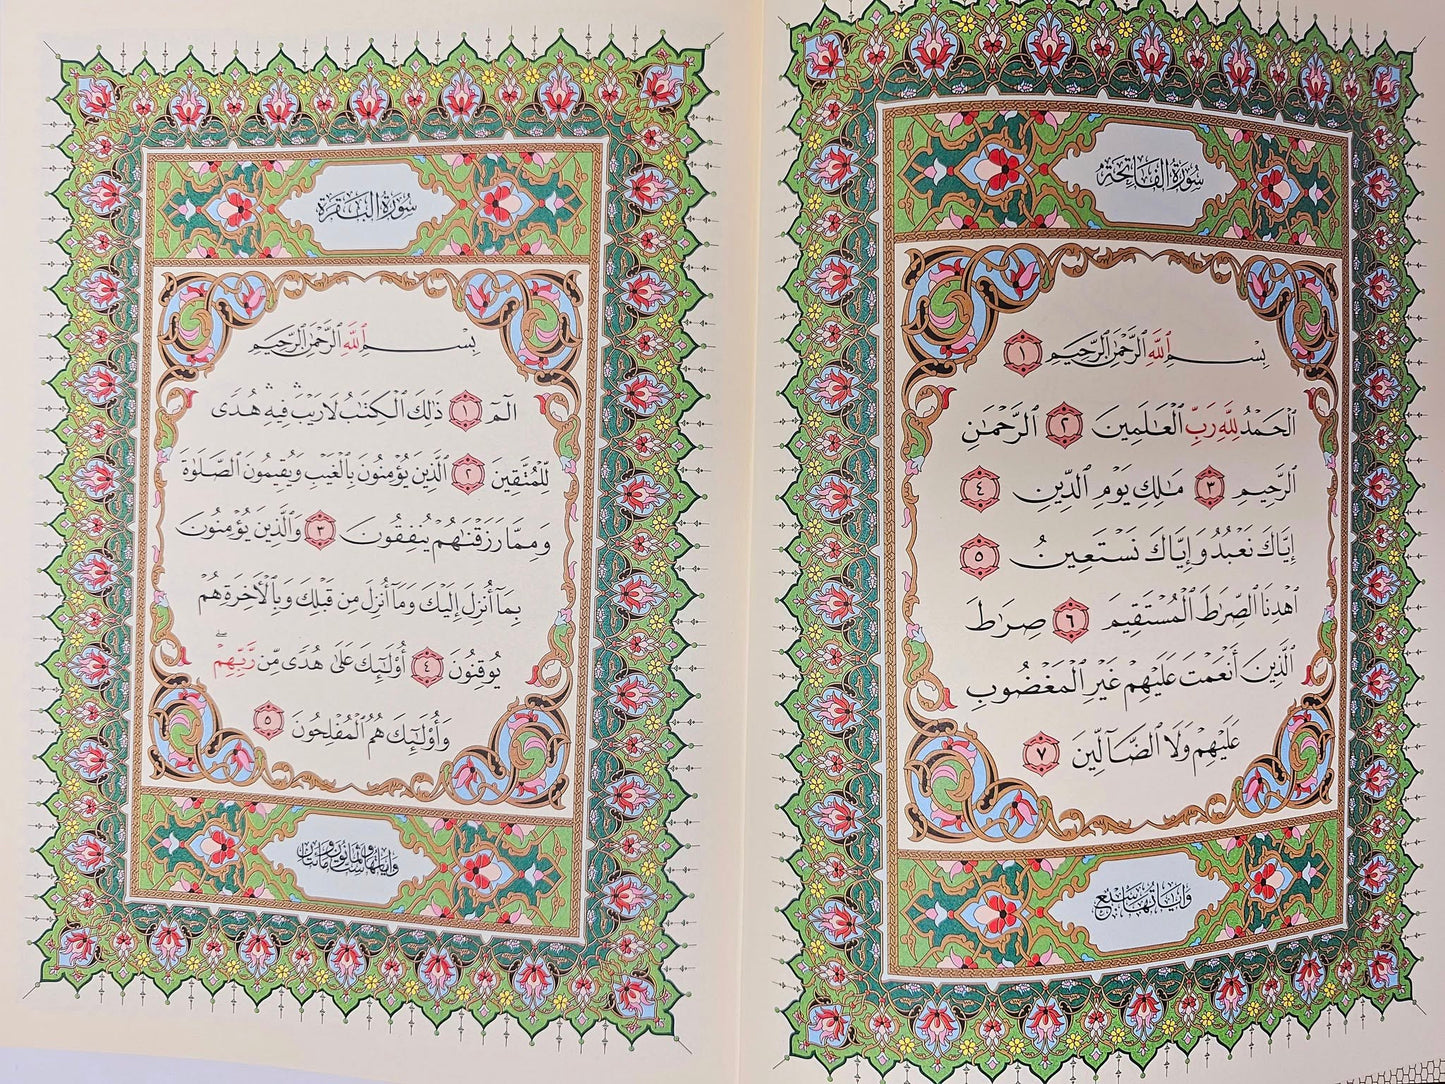 سُورَةُ الفَاتِحَةِ
بِسْمِ ٱللَّهِ ٱلرَّحْمَٰنِ ٱلرَّحِيمِ ١
ٱلْحَمْدُ لِلَّهِ رَبِّ ٱلْعَٰلَمِينَ ٢ ٱلرَّحْمَٰنِ
ٱلرَّحِيمِ ٣ مَٰلِكِ يَوْمِ ٱلدِّينِ ٤
إِيَّاكَ نَعْبُدُ وَإِيَّاكَ نَسْتَعِينُ ٥
ٱهْدِنَا ٱلصِّرَٰطَ ٱلْمُسْتَقِيمَ ٦ صِرَٰطَ
ٱلَّذِينَ أَنْعَمْتَ عَلَيْهِمْ غَيْرِ ٱلْمَغْضُوبِ
عَلَيْهِمْ وَلَا ٱلضَّآلِّينَ ٧
وَآيَاتُهَا سَبْعٌ
سُورَةُ البَقَرَةِ
بِسْمِ ٱللَّهِ ٱلرَّحْمَٰنِ ٱلرَّحِيمِ
الٓمٓ ١ ذَٰلِكَ ٱلْكِتَٰبُ لَا رَيْبَ ۛ فِيهِ ۛ هُدًى
لِّلْمُتَّقِينَ ٢ ٱلَّذِينَ يُؤْمِنُونَ بِٱلْغَيْبِ وَيُقِيمُونَ ٱلصَّلَوٰةَ
وَمِمَّا رَزَقْنَٰهُمْ يُنفِقُونَ ٣ وَٱلَّذِينَ يُؤْمِنُونَ
بِمَآ أُنزِلَ إِلَيْكَ وَمَآ أُنزِلَ مِن قَبْلِكَ وَبِٱلْءَاخِرَةِ هُمْ
يُوقِنُونَ ٤ أُو۟لَٰٓئِكَ عَلَىٰ هُدًى مِّن رَّبِّهِمْ ۖ
وَأُو۟لَٰٓئِكَ هُمُ ٱلْمُفْلِحُونَ ٥
وَآيَاتُهَا سِتٌّ وَثَمَانُونَ وَمِائَتَانِ